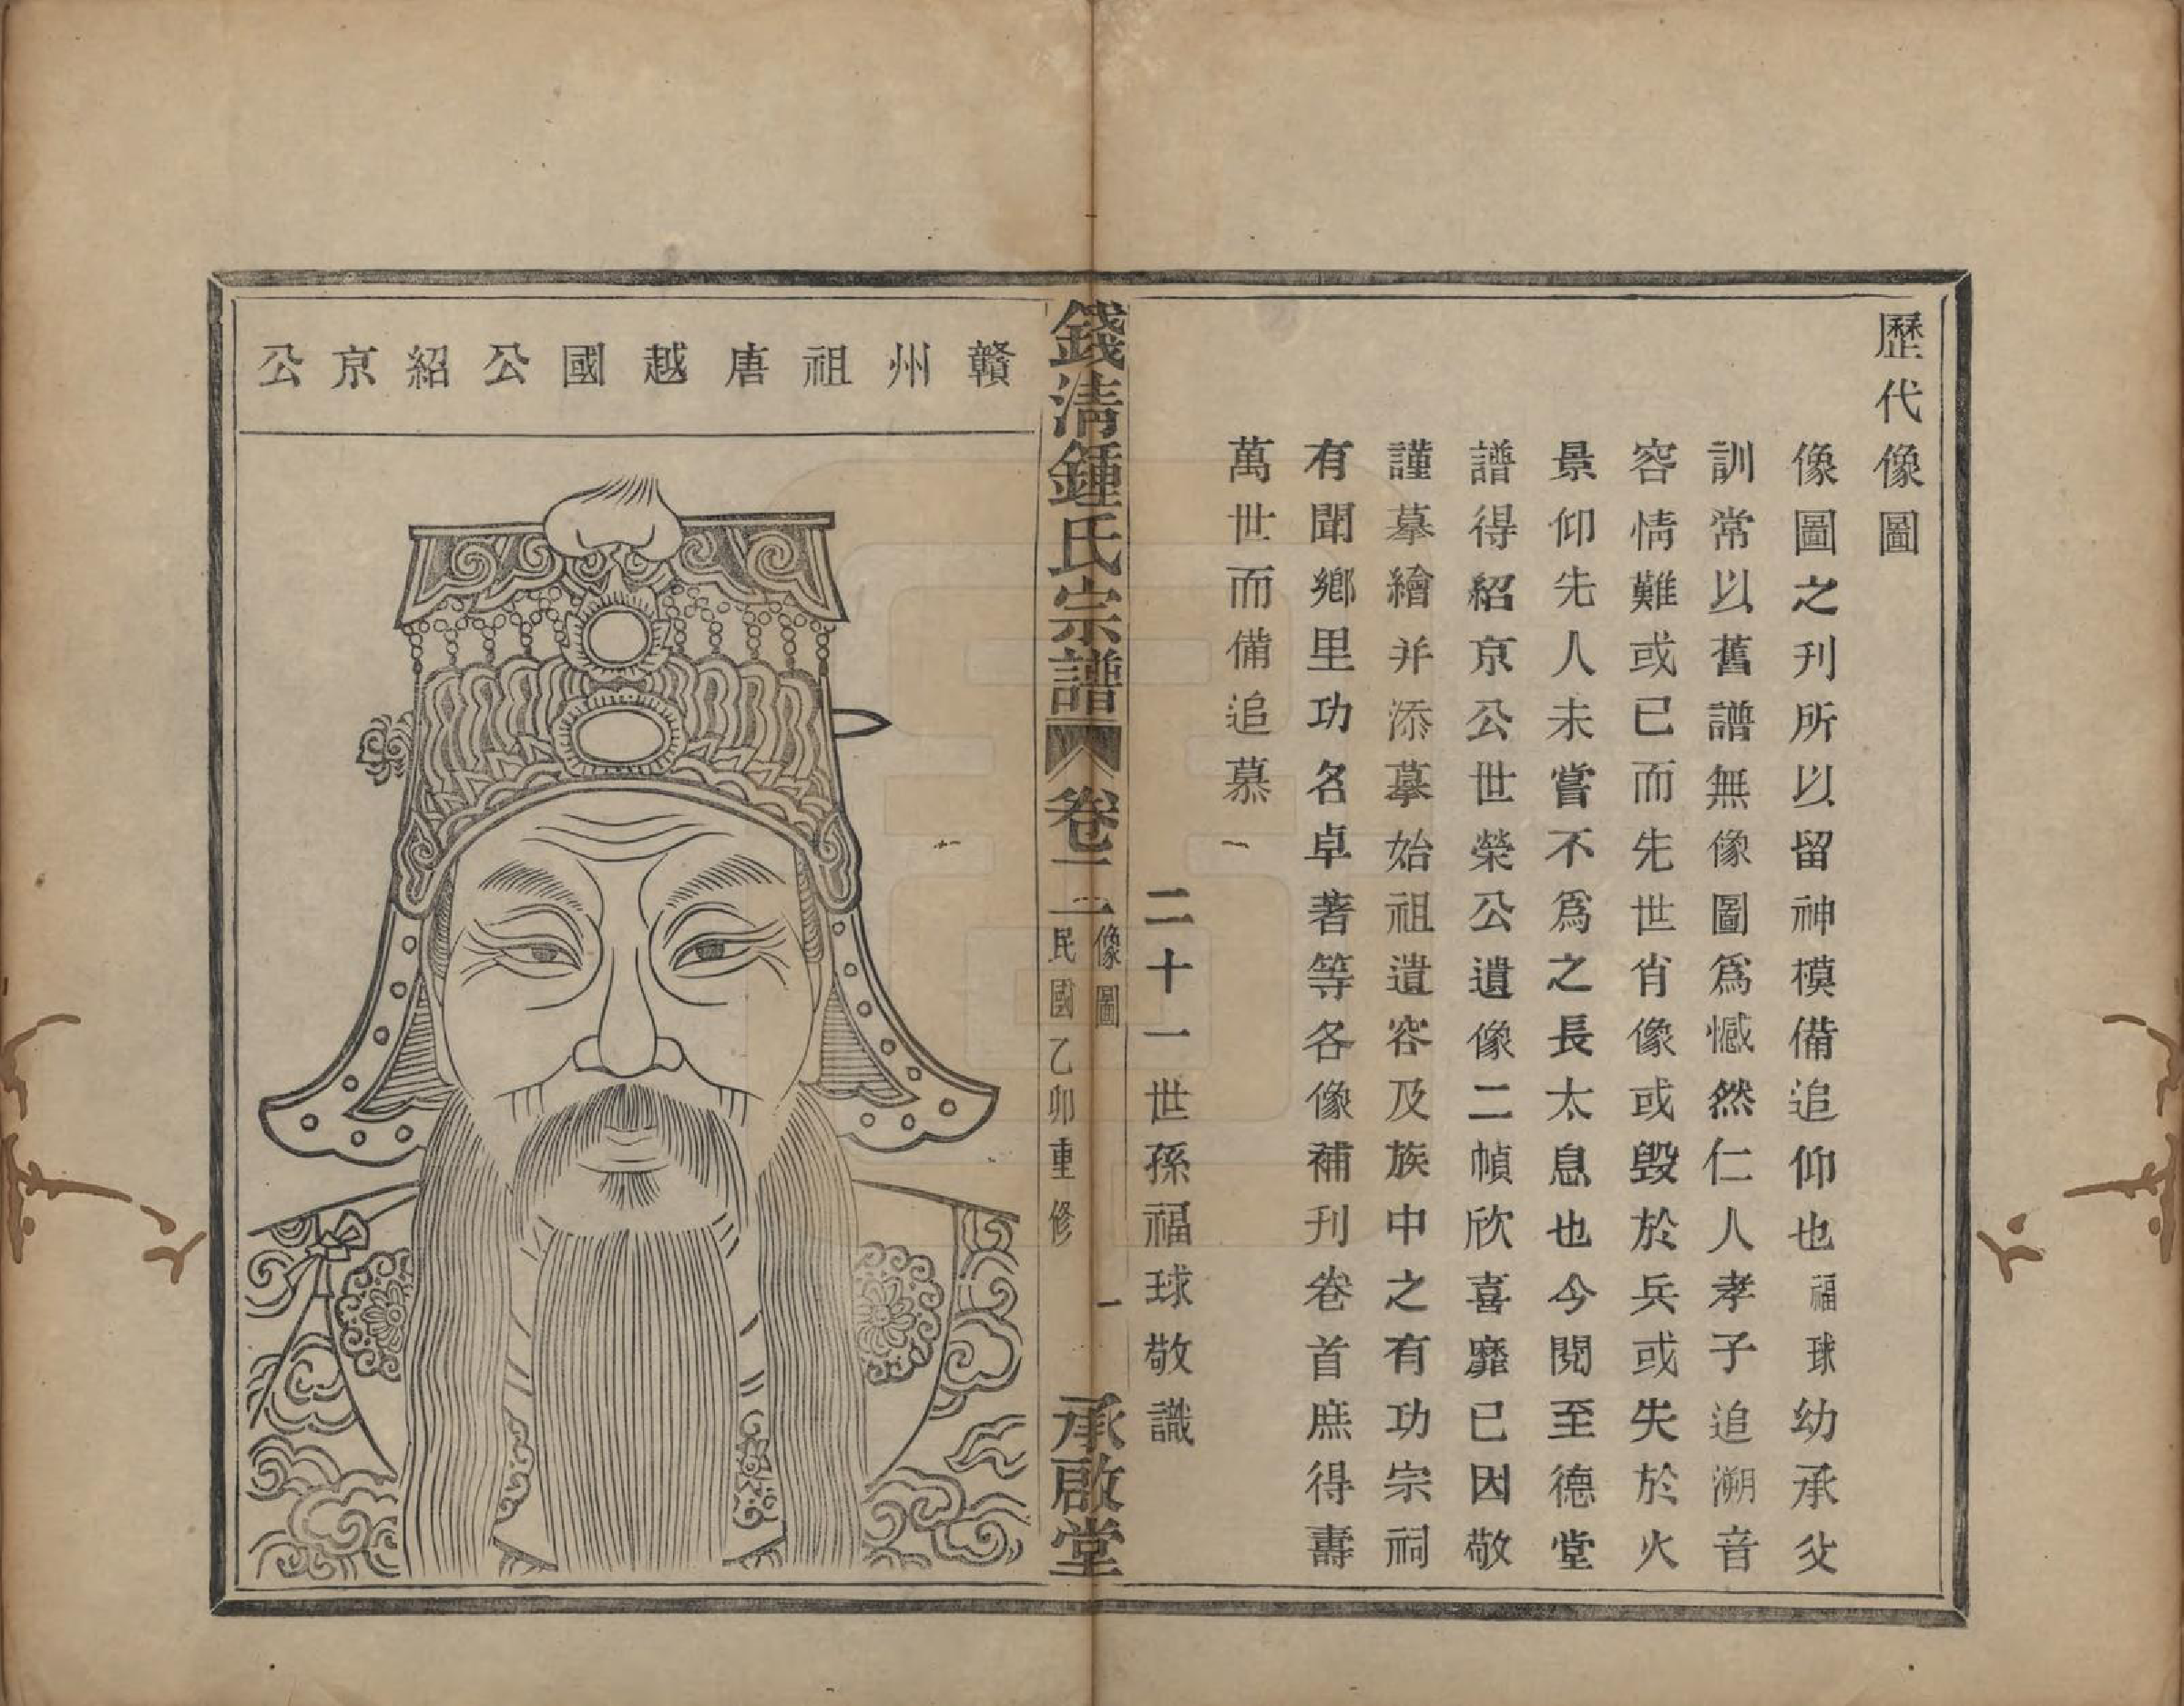 歷代像圖
像圖之刋所以留神模備追仰也福球幼承父
訓常以舊譜無像圖爲憾然仁人孝子追溯音
容情難或已而先世肖像或毀於兵或失於火
景仰先人未嘗不爲之長太息也今閱至德堂
譜得紹京公世榮公遺像二幀欣喜靡已因敬
謹摹繪并添摹始祖遺容及族中之有功宗祠
有聞鄉里功名卓著等各像補刊卷首庶得壽
萬世而備追慕
二十一世孫福球敬識
錢清鍾氏宗譜
卷一
像圖
一
民國乙卯重修
承啟堂
贛州祖唐越國公紹京公